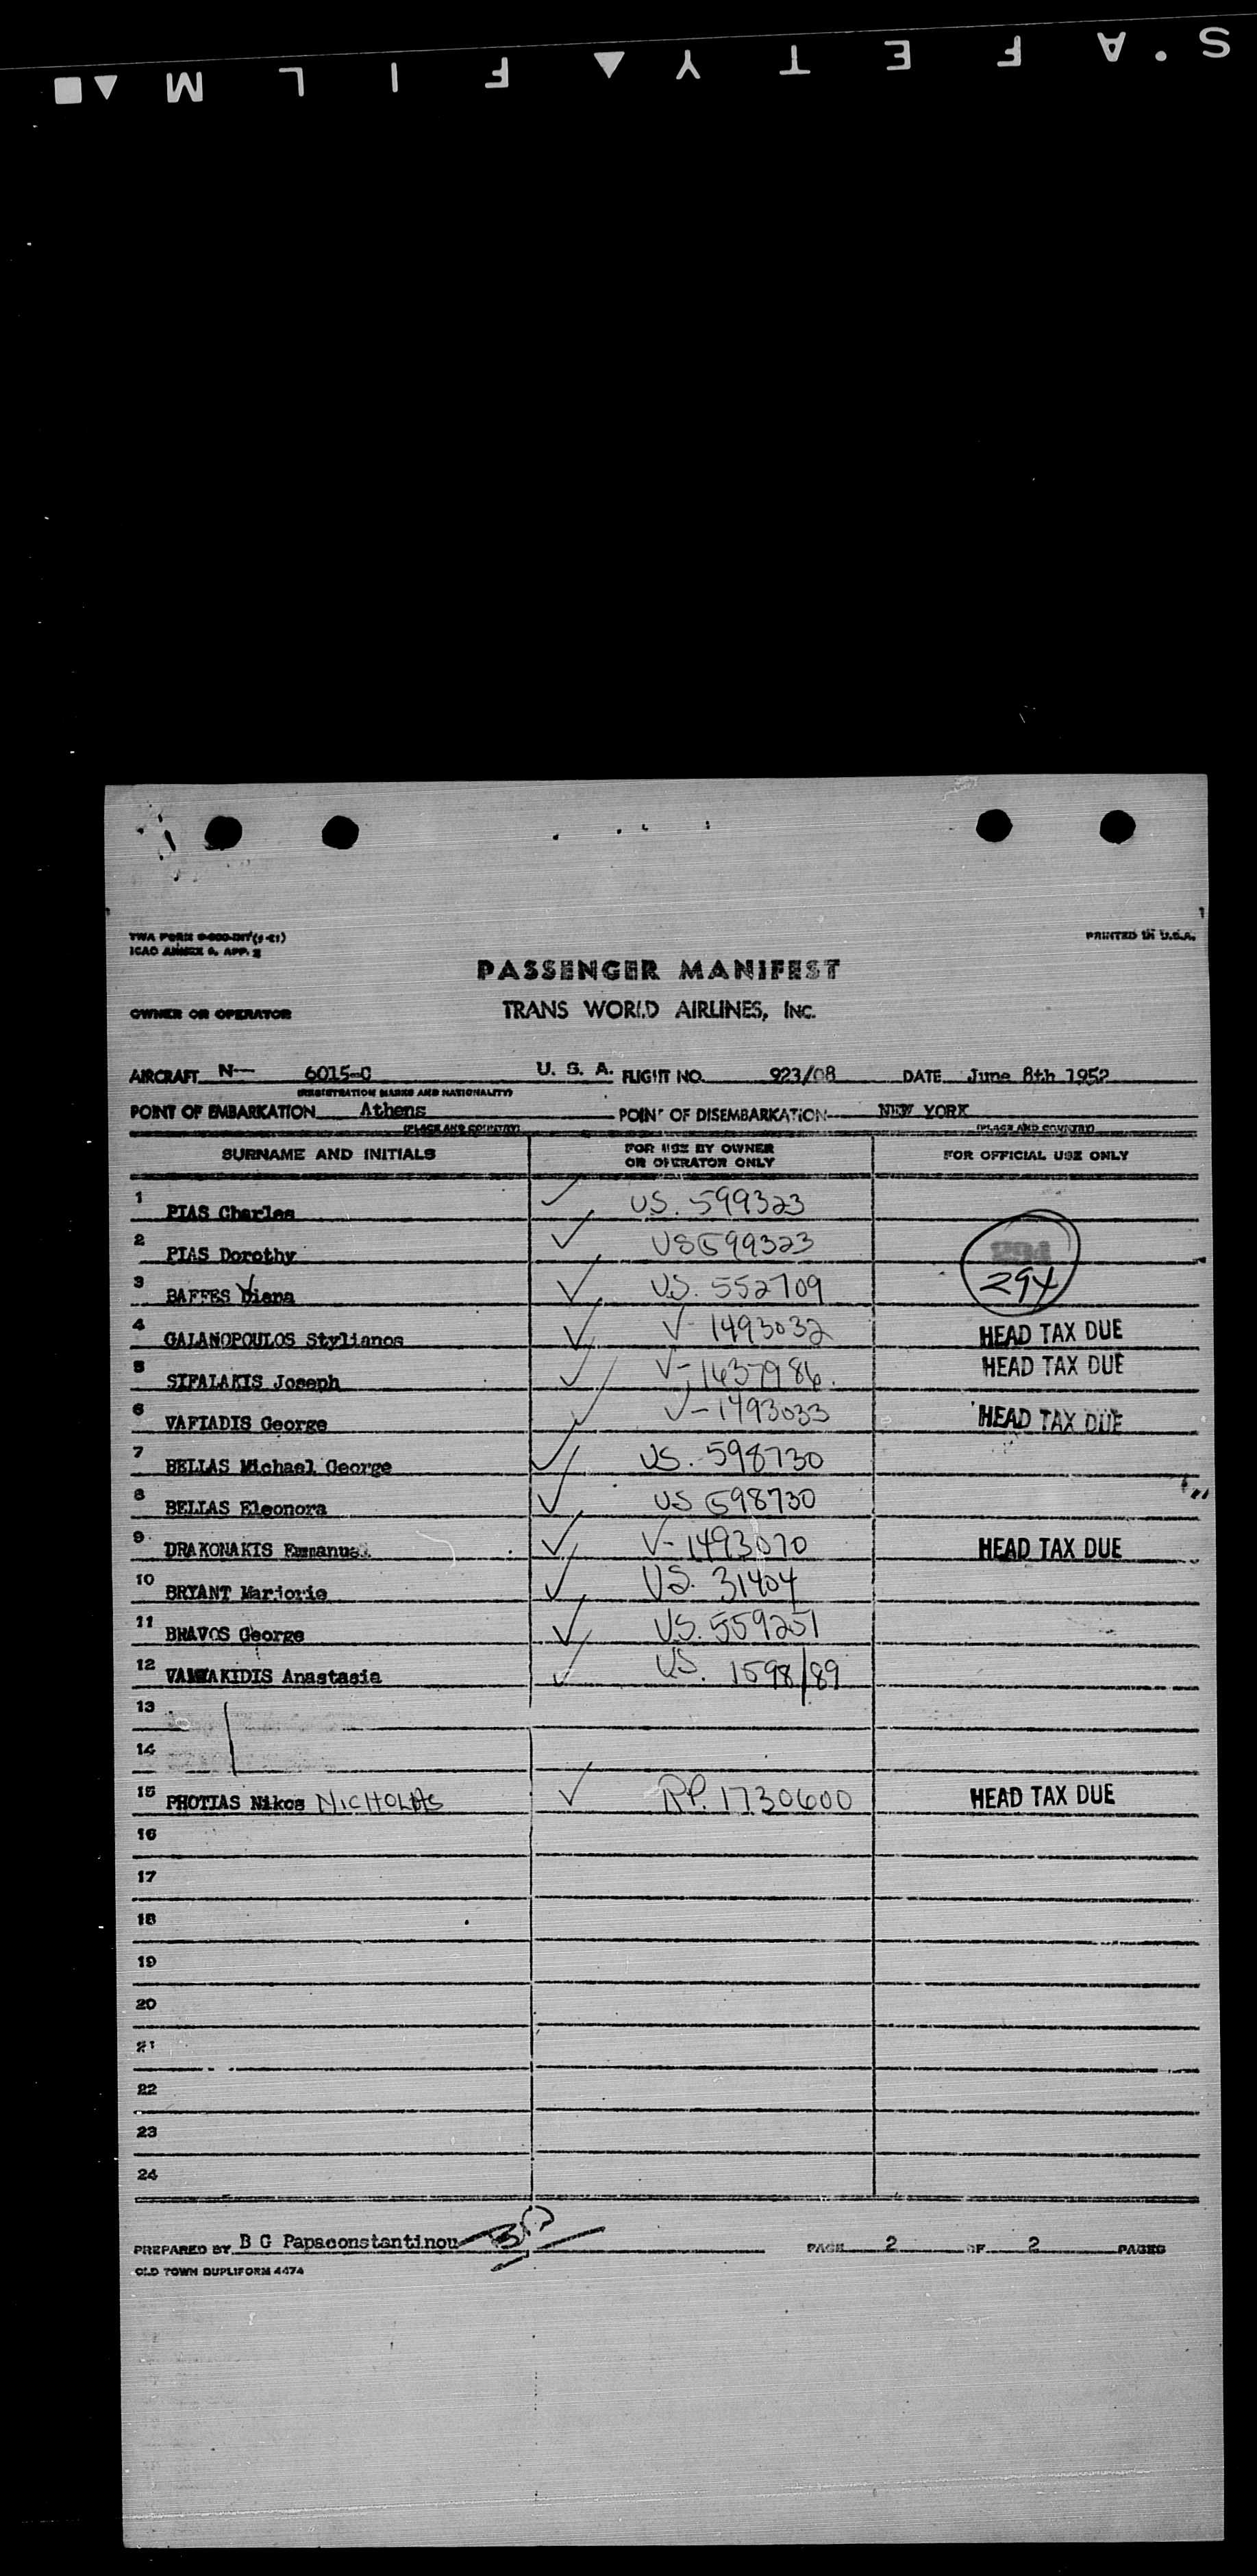 S.AFETY▲FILM▲■
ICAO ANNEX 9, APP. 2
PRINTED IN U.S.A.
PASSENGER MANIFEST
OWNER OR OPERATOR TRANS WORLD AIRLINES, INC.
AIRCRAFT N- 6015-C U. S. A. FLIGHT NO. 923/08 DATE June 8th 1952
(REGISTRATION MARKS AND NATIONALITY)
POINT OF EMBARKATION Athens POINT OF DISEMBARKATION NEW YORK
(PLACE AND COUNTRY) (PLACE AND COUNTRY)
SURNAME AND INITIALS FOR USE BY OWNER OR OPERATOR ONLY FOR OFFICIAL USE ONLY
1 PIAS Charles ✓ US. 599323
2 PIAS Dorothy ✓ US 599323 294
3 BAFFES Diana ✓ US. 552709 294
4 GALANOPOULOS Stylianos ✓ V- 1493032 HEAD TAX DUE
5 SIFALAKIS Joseph ✓ V-1637986. HEAD TAX DUE
6 VAFIADIS George ✓ V-1493033 HEAD TAX DUE
7 BELLAS Michael George ✓ US. 598730
8 BELLAS Eleonora ✓ US 598730
9 DRAKONAKIS Emmanuel ✓ V-1493070 HEAD TAX DUE
10 BRYANT Marjorie ✓ US. 31404
11 BRAVOS George ✓ US. 559251
12 Anastasia ✓ US. 1598/89
13
14
15 PHOTIAS Nikos NICHOLAS ✓ RP. 1730600 HEAD TAX DUE
16
17
18
19
20
21
22
23
24
PREPARED BY B G Papaconstantinou PAGE 2 OF 2 PAGES
OLD TOWN DUPLIFORM 4474